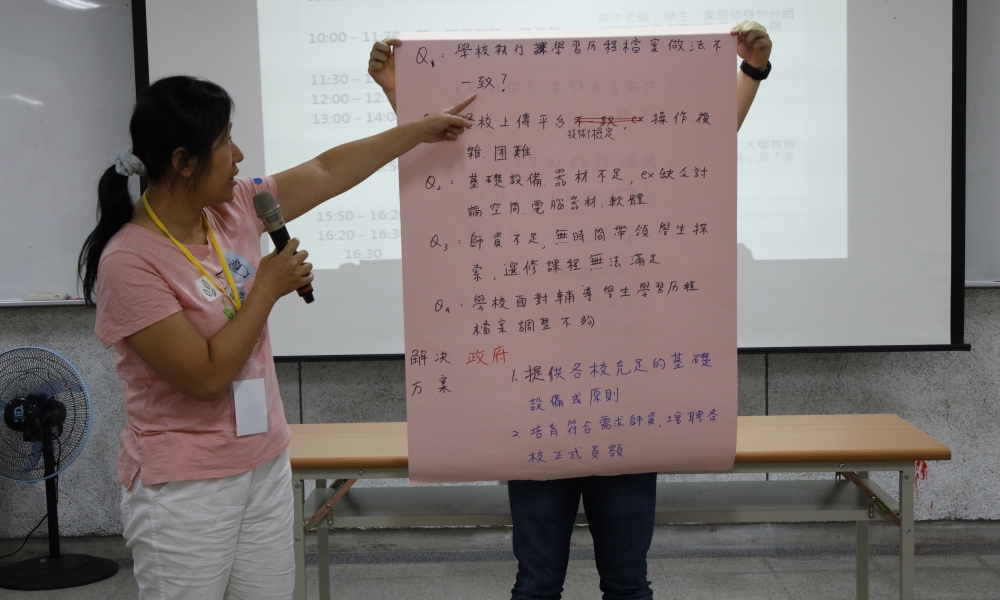 10:00 – 11:30
高中老師、學生、家長依身份分組
11:30 –
12:00 – 12:
13:00 – 14:0
大學教授
15:50 – 16:20
16:20 – 16:30
16:30
Q1: 學校執行課學習历程檔案做法不
一致?
校上傳平台不一致, ex 操作複
技術穩定
雜.困難
Q2: 基礎設備.器材不足, ex缺乏討
論空間.電腦器材.軟體.
Q3: 師資不足,無時間帶領學生探
索,選修課程無法滿足
Q4: 學校面對輔導學生學習历程
檔案調整不夠
解決 政府
方案
1. 提供各校充足的基礎
設備或原則
2. 培育符合需求師資,增聘各
校正式員額